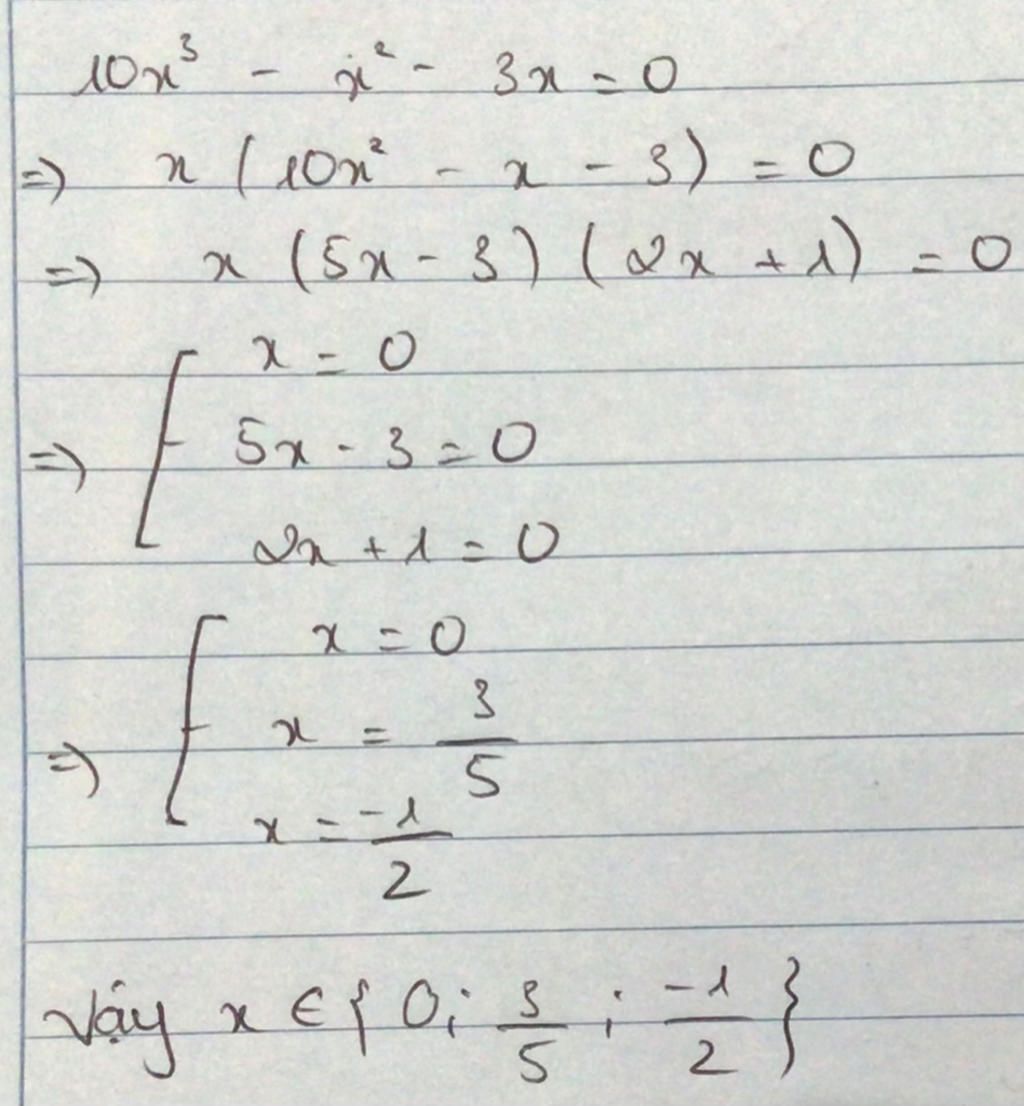 10x³ - x² - 3x = 0
=> x (10x² - x - 3) = 0
=> x (5x - 3) (2x + 1) = 0
=> [ x = 0
5x - 3 = 0
2x + 1 = 0
=> [ x = 0
x = 3/5
x = -1/2
Vậy x ∈ { 0; 3/5 ; -1/2 }